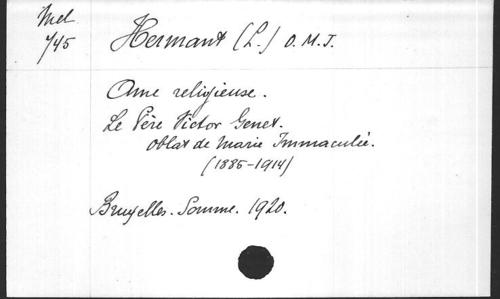 Mel
745
Hermant (L.) O.M.J.
Ame religieuse.
Le Père Victor Genet.
Oblat de Marie Immaculée.
(1885-1914)
Bruxelles. Somme. 1920.